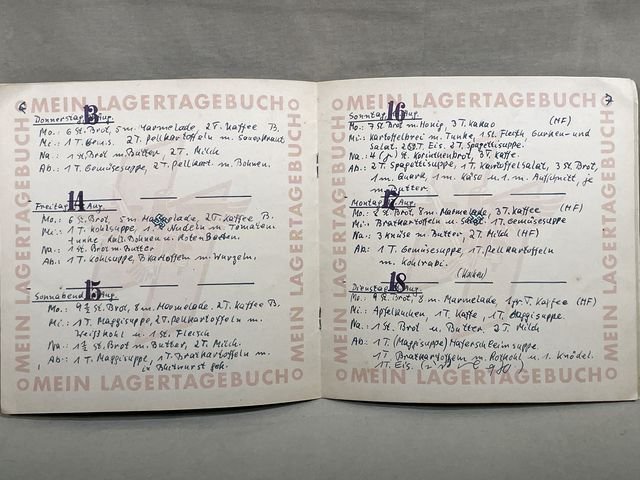 6
MEIN LAGERTAGEBUCH
Donnerstag 13 Aug.
Mo.: 6 St. Brot, 5 m. Marmelade, 2 T. Kaffee B.
Mi.: 1 T. Gems. 2 T. Pellkartoffeln m. Sauerkraut
Na.: 1 St. Brot m. Butter, 2 T. Milch
Ab.: 1 T. Gemüsesuppe, 2 T. Pellkart. m. Bohnen.
Freitag 14 Aug.
Mo.: 6 St. Brot, 5 m. Marmelade, 2 T. Kaffee B.
Mi.: 1 T. Kohlsuppe, 1 Nudeln m. Tomaten
Tunke, Bohnen u. Roten Beeten.
Na.: 1 St. Brot m. Butter
Ab.: 1 T. Kohlsuppe, Bkartoffeln m. Wurzeln,
Sonnabend 15 Aug.
Mo.: 9 ½ St. Brot, 8 m. Marmelade, 2 T. Kaffee B.
Mi.: 1 T. Maggisuppe, 2 T. Pellkartoffeln m.
Weißkohl u. 1 St. Fleisch
Na.: 1 ½ St. Brot m. Butter, 2 T. Milch.
Ab.: 1 T. Maggisuppe, 1 T. Bratkartoffeln m.
in Blutwurst geb.
MEIN LAGERTAGEBUCH
MEIN LAGERTAGEBUCH
MEIN LAGERTAGEBUCH
7
MEIN LAGERTAGEBUCH
Sonntag 16 Aug.
Mo.: 7 St. Brot m. Honig, 3 T. Kakao (MF)
Mi.: Kartoffelbrei m. Tunke, 1 St. Fleisch Gurken- und
Salat. Eis. 2 T. Spagettisuppe.
Na.: 4 St. Korinthenbrot, 3 T. Kaffe.
Ab.: 2 T. Spagettisuppe, 1 T. Kartoffelsalat, 3 St. Brot,
1 m. Quark, 1 m. Käse u. 1. m. Aufschnitt, je
m. Butter.
Montag 17 Aug.
Mo.: St. Brot, 8 m. Marmelade, 3 T. Kaffee (MF)
Mi.: Bratkartoffeln u. Salat. 1 T. Gemüsesuppe
Na.: 3 Knüse m. Butter, 2 T. Milch (MF)
Ab.: 1 T. Gemüsesuppe, 1 T. Pellkartoffeln
m. Kohlrabi.
Dienstag 18 Aug.
Mo.: 9 St. Brot, 8 m. Marmelade, T. Kaffee (MF)
Mi.: Apfelkuchen, 1 T. Kaffe, 1 T. Maggisuppe.
Na.: 1 St. Brot u. Butter, 2 T. Milch
Ab.: 1 T. (Maggisuppe) Haferschleimsuppe.
1 T. Bratkartoffeln m. Rotkohl u. 1. Knödel.
1 T. Eis.
MEIN LAGERTAGEBUCH
MEIN LAGERTAGEBUCH
MEIN LAGERTAGEBUCH